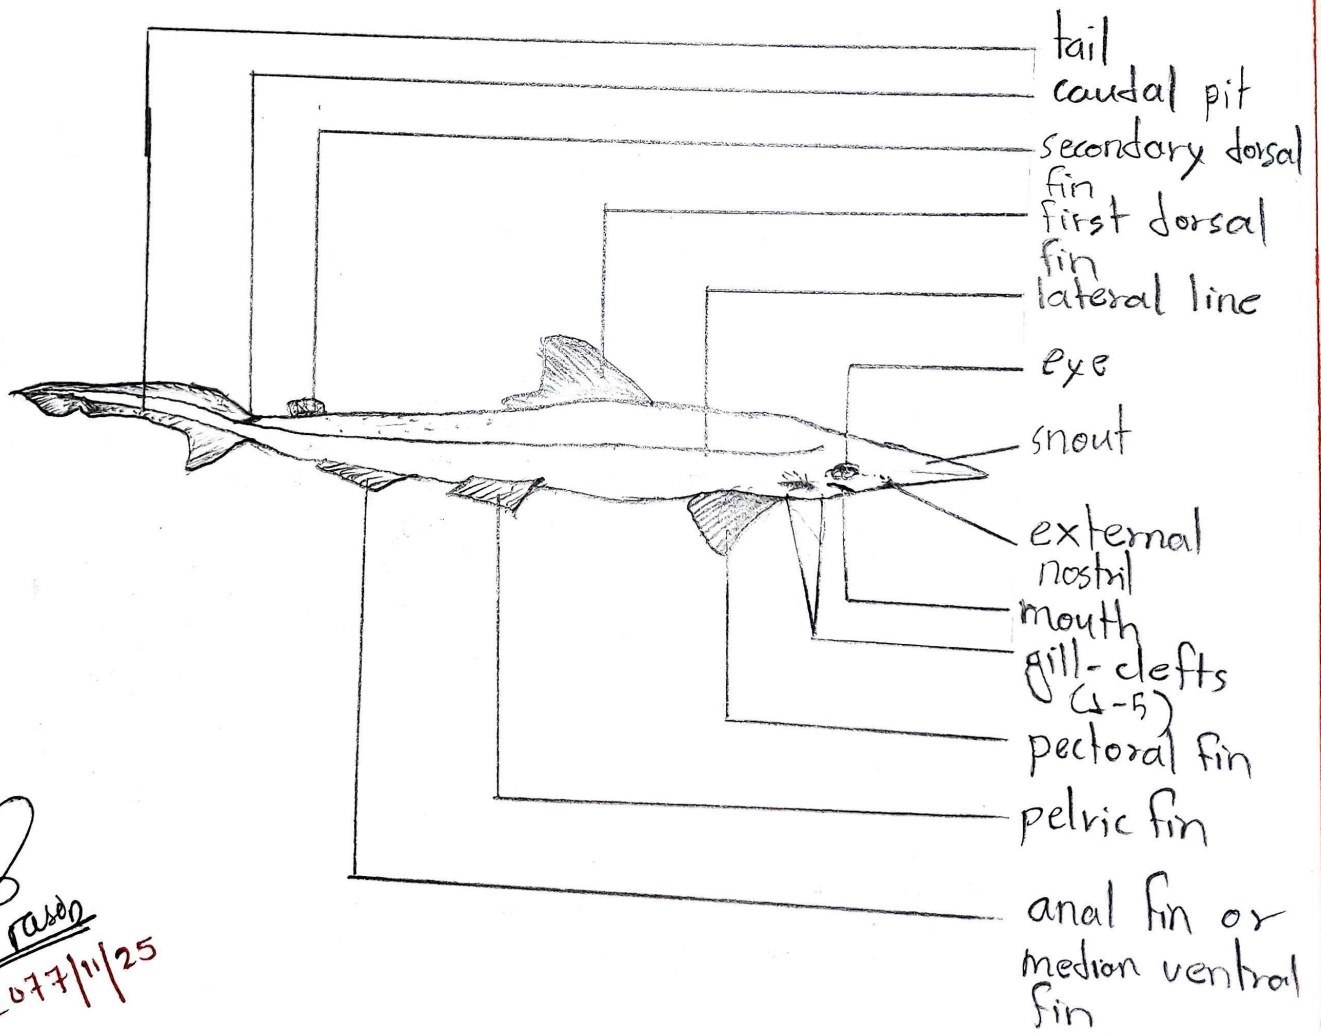 tail
caudal pit
secondary dorsal
fin
first dorsal
fin
lateral line
eye
snout
external
nostril
mouth
gill-clefts
(1-5)
pectoral fin
pelvic fin
anal fin or
median ventral
fin
077/11/25